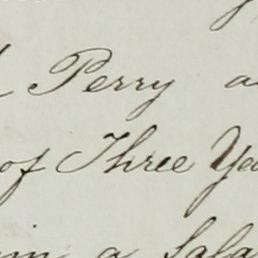 Perry
of Three Yea
in a Sala